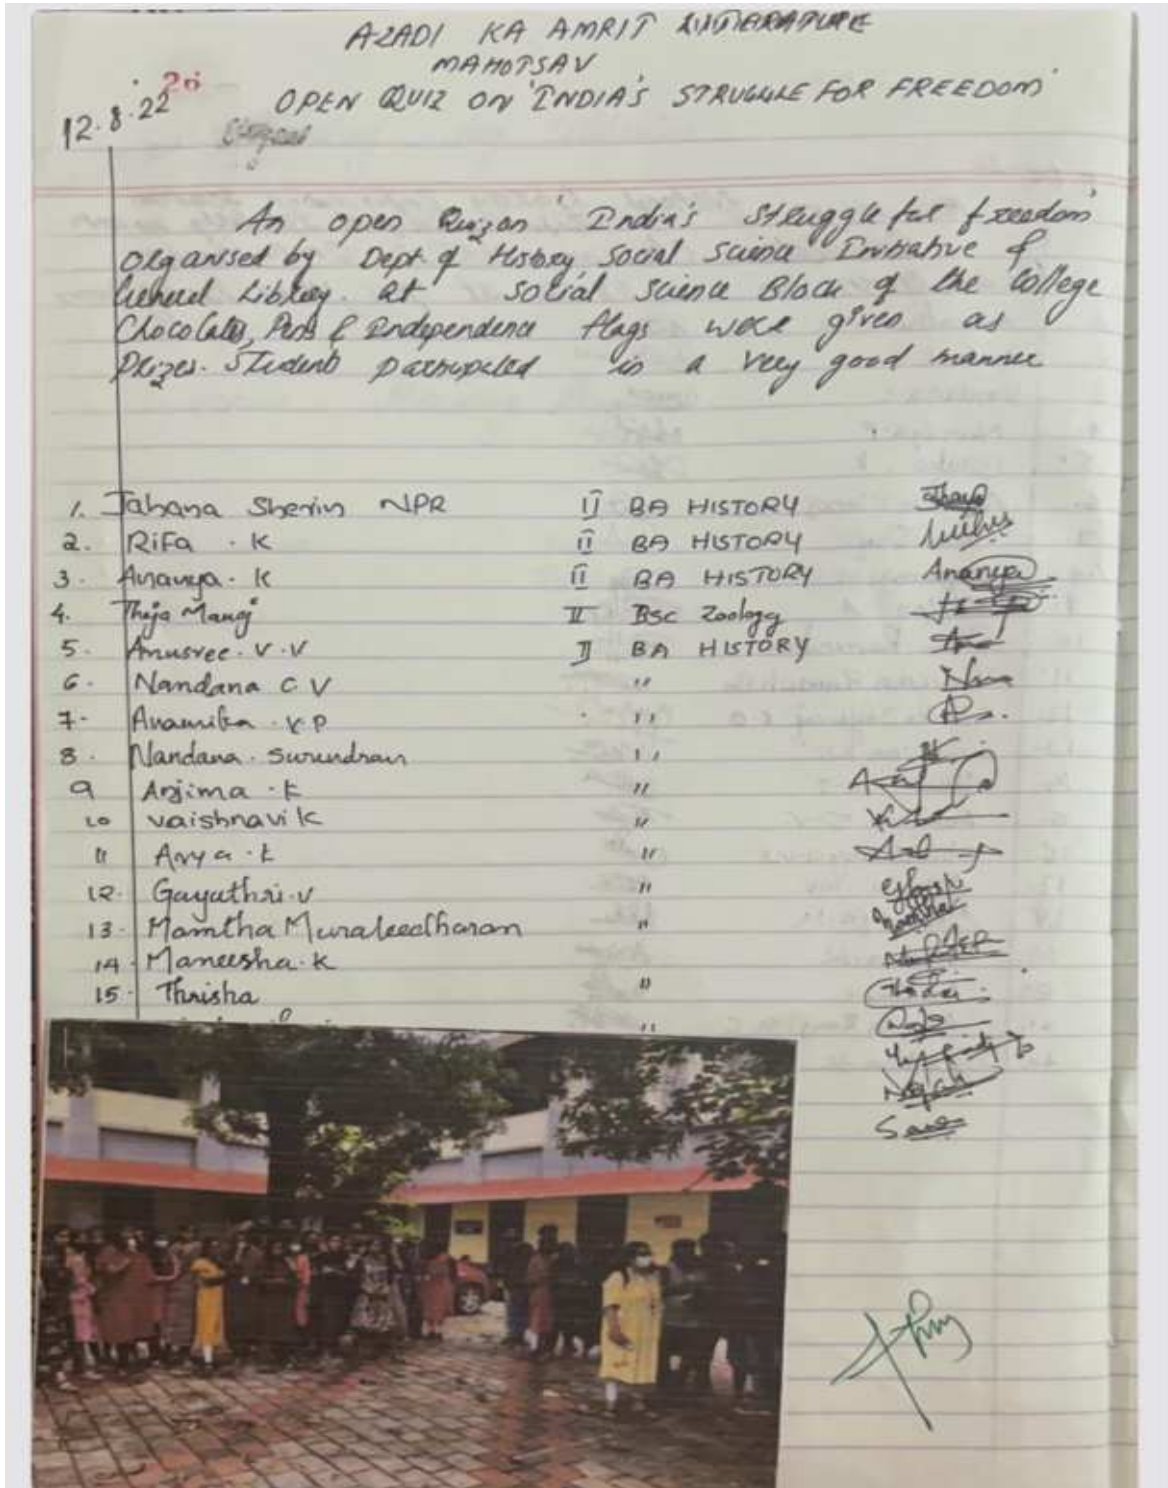 AZADI KA AMRIT
MAHOTSAV
26
12.8.22
OPEN QUIZ ON 'INDIA'S STRUGGLE FOR FREEDOM'
An open Quiz on 'India's Struggle for freedom'
organised by Dept. of History, Social Science Initiative &
General Library. at Social Science Block of the College
Chocolates, Pens & Independence flags were given as
Prizes. Students participated in a very good manner
1. Jahana Sherin NPR II BA HISTORY
2. Rifa . K II BA HISTORY
3. Ananya . K II BA HISTORY Ananya
4. Thija Manoj II BSc Zoology
5. Anusree . V . V II BA HISTORY
6. Nandana C V "
7. Anamika . K P "
8. Nandana . Surendran "
9 Anjima . K "
10 Vaishnavi K "
11 Arya . K "
12. Gayathri . V "
13. Mamtha Muraleedharan "
14 Maneesha . K
15. Thrisha "
"